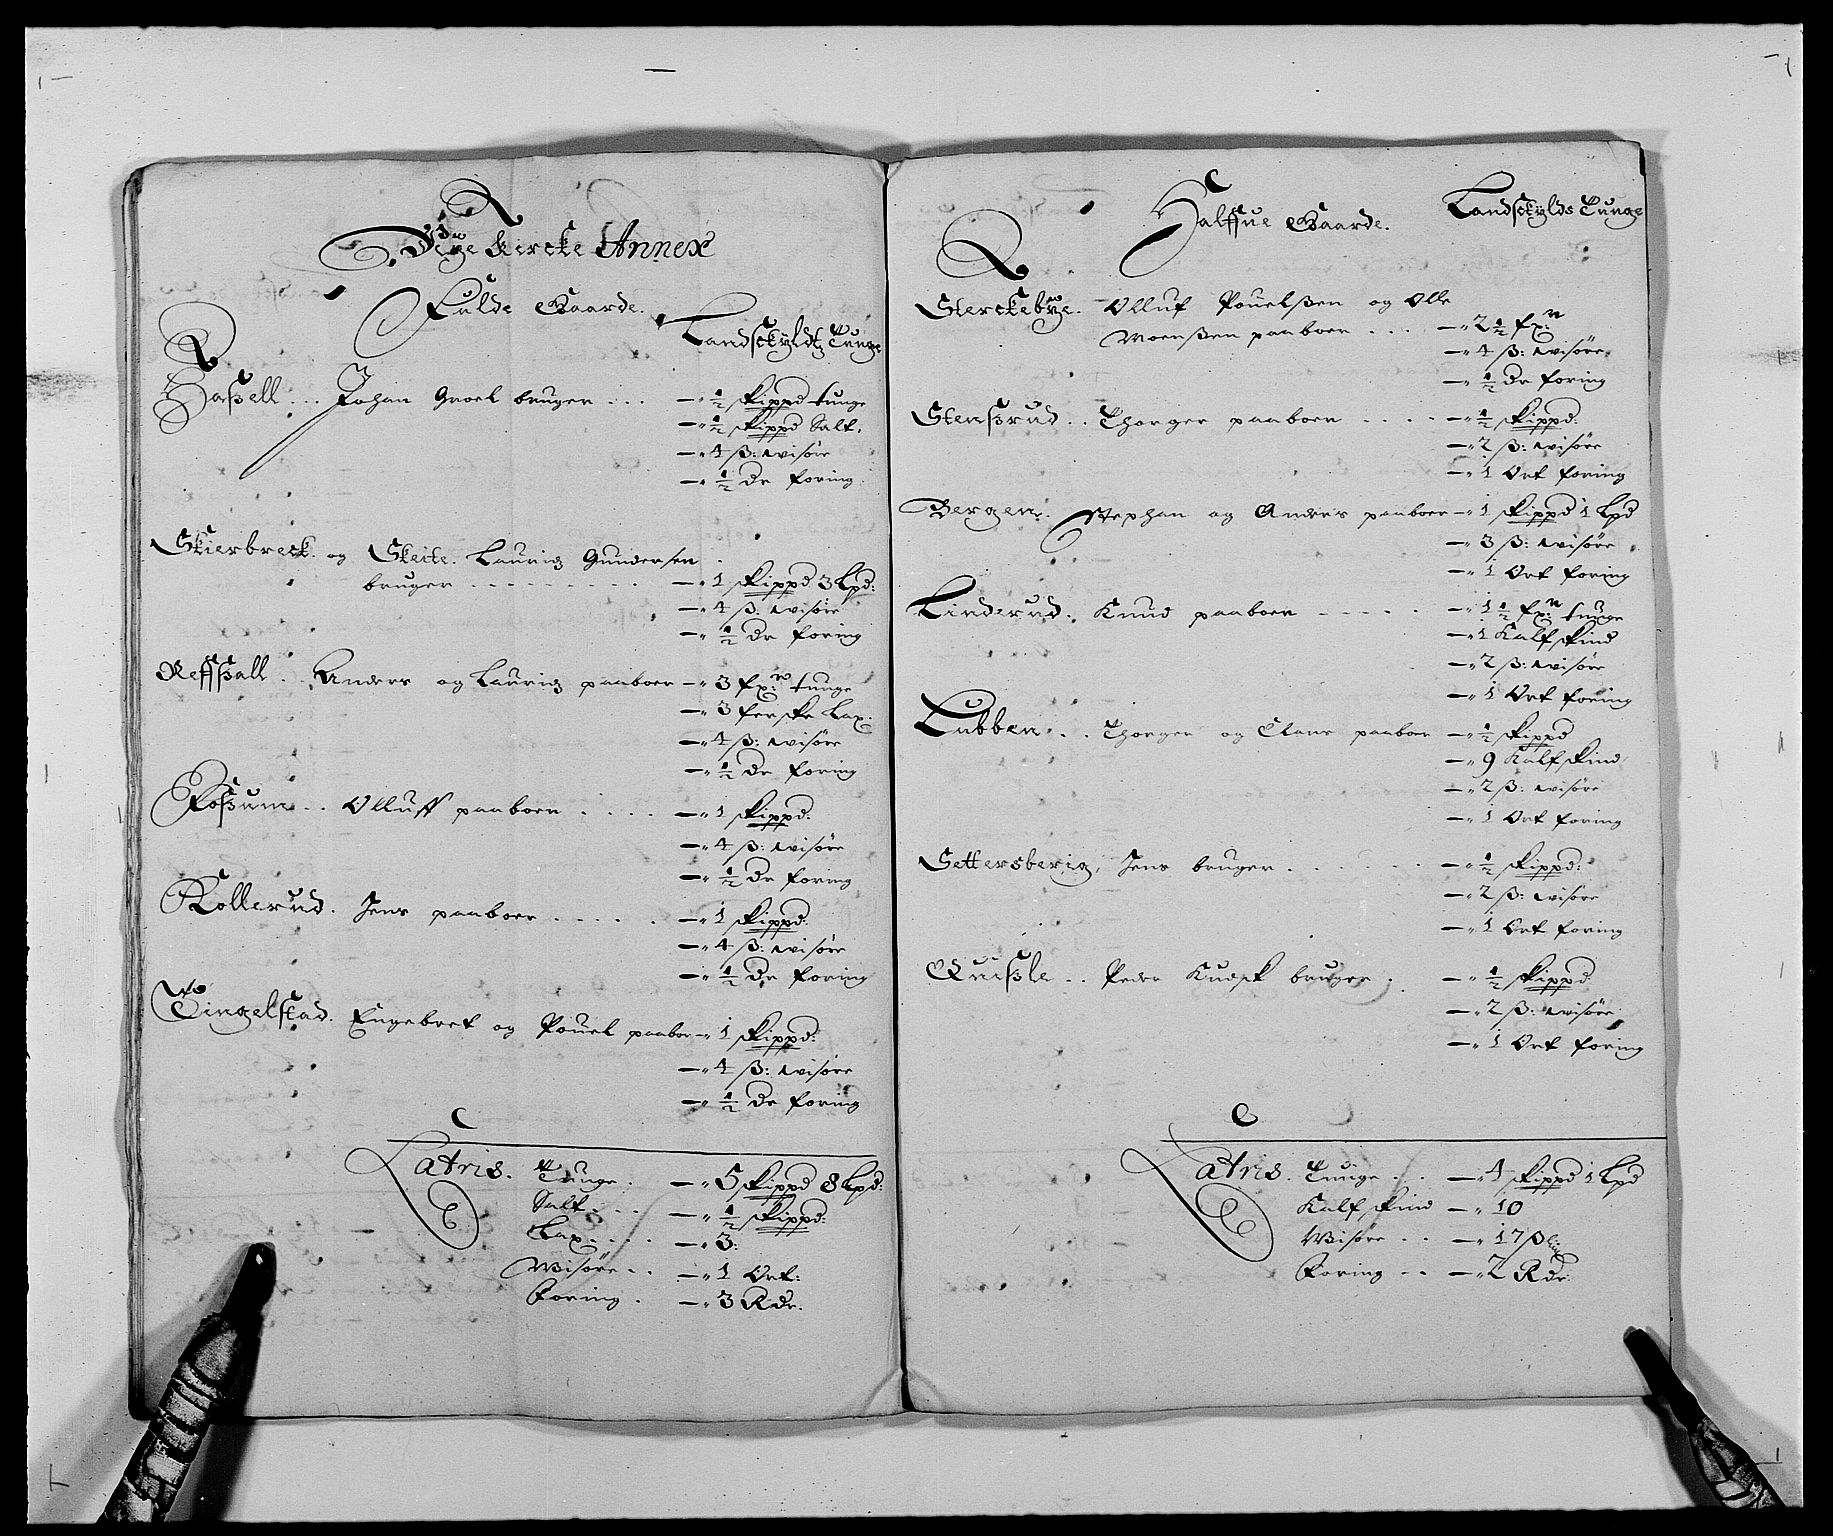 Vige Kircke Annex
Fulde Gaarde.
Landsckyldtz Tunge
Haßell .. Johan Groel bruger ... — ½ skippd tunge
— ½ skippd Salt.
— 4 ß: wisöre
— ½ dr foring.
Skierbreck. og Skeite. Lauritz Gundersen
bruger — 1 skippd 3 Lpd:
— 4 ß: wisöre
— ½ dr foring
Reffßall . Anders og Lauritz paaboer — 3 fxr tunge
— 3 ferske Lax.
— 4 ß: wisöre
— ½ dr foring
Foßum .. Olluff paaboer .... — 1 skippd:
— 4 ß: wisöre
— ½ dr foring
Kollerud. Jens paaboer ..... — 1 skippd:
— 4 ß: wisöre
— ½ dr foring
Tingelstad. Engebret og Pouel paaboer — 1 skippd:
— 4 ß: wisöre
— ½ dr foring
Latris. Tunge. — 5 skippd 8 Lpd:
Salt.... — ½ skippd:
Lax.... — 3:
Wisöre.. — 1 Ort:
Foring . — 3 Rdr.
Halffue Gaarde. Landsckylds Tunge
Sterckebye. Olluf Pouelßen og Olle
Moenßen paaboer .... — 2½ fxr
— 4 ß: wisöre.
— ½ dr foring
Stenßrud .. Thorger paaboer .... — ½ skippd:
— 2 ß: wisöre
— 1 Ort foring
Bergen. Stephan og Anders paaboer — 1 skippd 1 Lpd
— 3 ß: wisöre
— 1 Ort foring
Linderud. Knud paaboer — 1½ fxr tunge
— 1 Kalfskind
— 2 ß: wisöre
— 1 Ort foring
Lubben .. Thorger og Claus paaboer — ½ skippd
— 9 Kalfskind
— 2 ß: wisöre
— 1 Ort foring
Settersberig, Jens bruger. — ½ skippd:
— 2 ß: wisöre
— 1 Ort foring
Quißle .. Peder Kudsk bruger. — ½ skippd
— 2 ß: wisöre
— 1 Ort foring
Latris. Tunge ... — 4 skippd 1 Lpd
Kalfskind — 10
Wisöre .. — 17 ß
Foring .. — 2 Rdr.